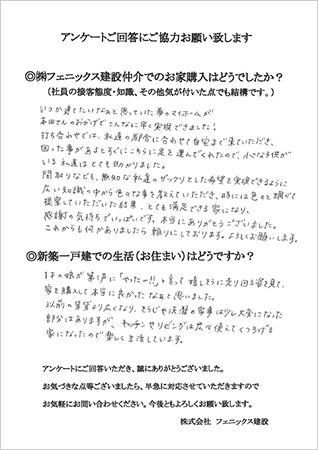 アンケートご回答にご協力お願い致します
◎㈱フェニックス建設仲介でのお家購入はどうでしたか？
（社員の接客態度・知識、その他気が付いた点でも結構です。）
いつか建てたいなぁと思っていた夢のマイホームが
本田さんのおかげでこんなに早く実現できました！
打ち合わせでは、私達の都合に合わせて自宅まで来ていただき、
困った事があるとすぐにこちらに足を運んでくれたので、小さな子供が
いる私達はとても助かりました。
間取りなども、無知な私達のザックリとした希望を実現できるように
広い知識の中から色々な事を教えていただき、時には色々と調べて
提案していただいた結果、とても満足できる家になり、
感謝の気持ちでいっぱいです。本当にありがとうございました。
これからも何かありましたら頼りにしております。よろしくお願いします。
◎新築一戸建での生活（お住まい）はどうですか？
1才の娘が第1声に「やったー!!」と言って嬉しそうに走り回る姿を見て、
家を購入して本当に良かったなぁと思いました。
以前の賃貸より広くなり、そうじや洗濯の家事は少し大変になった
部分はありますが、キッチンやリビングは広々使えてくつろげる
家になったので楽しく生活しています。
アンケートにご回答いただき、誠にありがとうございました。
お気づきな点等ございましたら、早急に対応させていただきますので
お気軽にお問い合わせください。今後ともよろしくお願い致します。
株式会社 フェニックス建設